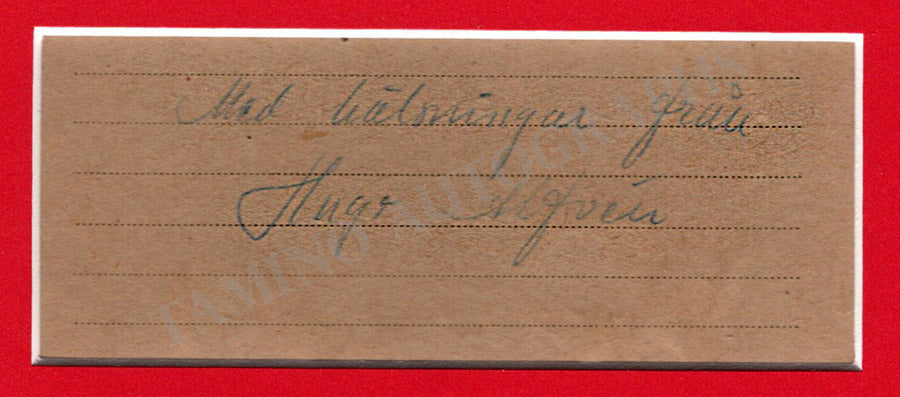 Med hälsningar från
Hugo Alfvén
TAMINO AUTOGRAPHS